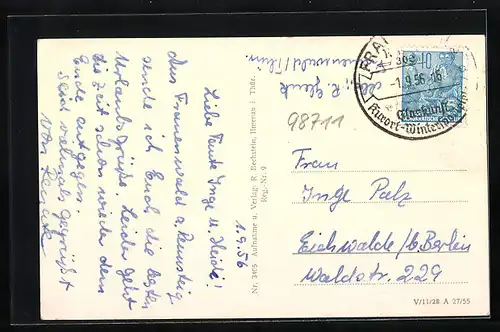 1.9.56
Liebe Tante Inge u. Heidi!
Aus Frauenwald a. Rennsteig
sende ich Euch die besten
Urlaubsgrüße. Leider geht
die Zeit schon wieder dem
Ende entgegen.
Seid vielmals gegrüßt
von
Nr. 3405 Aufnahme u. Verlag: R. Bechstein, Ilmenau i. Thür.
Reg.-Nr. 9
Abs. R.
Frauenwald/Thür.
98711
FRAU
1.9.56-16
Kurort-Winter
10
Frau
Inge Palz
Eichwalde/b. Berlin
Waldstr. 229
V/11/28 A 27/55